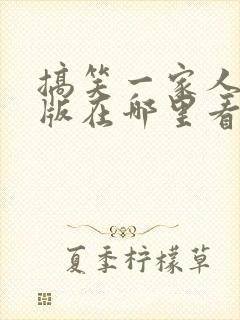 搞笑一家人
版在哪里看
夏季柠檬草